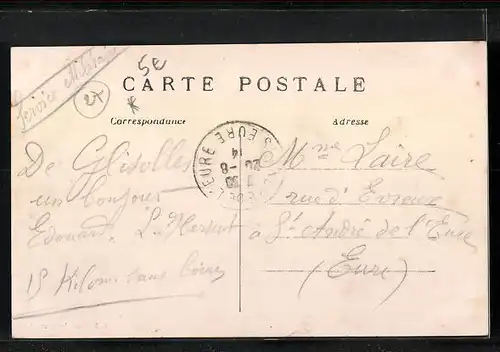 Service Militaire
5e
CARTE POSTALE
Correspondance
Adresse
De Glisolles
un bonjour
Edouard L.
15 Kilom sans boire
Mme Laire
rue d'Evreux
à St André de l'Eure
(Eure)
EURE
20 - 8
14
S. EURE